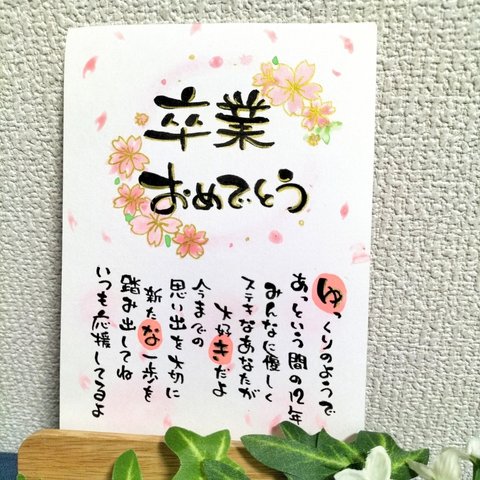 卒業
おめでとう
ゆっくりのようで
あっという間の12年
みんなに優しく
ステキなあなたが
大好きだよ
今までの
思い出を大切に
新たな一歩を
踏み出してね
いつも応援してるよ